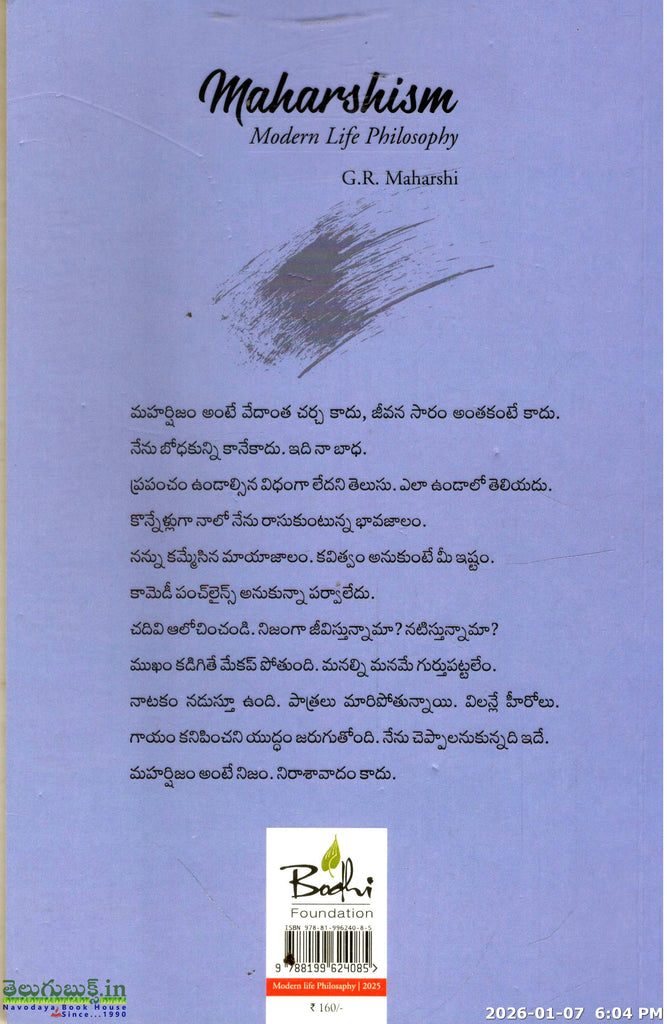 Maharshism
Modern Life Philosophy
G.R. Maharshi
మహర్షిజం అంటే వేదాంత చర్చ కాదు, జీవన సారం అంతకంటే కాదు.
నేను బోధకున్ని కానేకాదు. ఇది నా బాధ.
ప్రపంచం ఉండాల్సిన విధంగా లేదని తెలుసు. ఎలా ఉండాలో తెలియదు.
కొన్నేళ్లుగా నాలో నేను రాసుకుంటున్న భావజాలం.
నన్ను కమ్మేసిన మాయాజాలం. కవిత్వం అనుకుంటే మీ ఇష్టం.
కామెడీ పంచ్‌లైన్స్ అనుకున్నా పర్వాలేదు.
చదివి ఆలోచించండి. నిజంగా జీవిస్తున్నామా? నటిస్తున్నామా?
ముఖం కడిగితే మేకప్ పోతుంది. మనల్ని మనమే గుర్తుపట్టలేం.
నాటకం నడుస్తూ ఉంది. పాత్రలు మారిపోతున్నాయి. విలన్లే హీరోలు.
గాయం కనిపించని యుద్ధం జరుగుతోంది. నేను చెప్పాలనుకున్నది ఇదే.
మహర్షిజం అంటే నిజం. నిరాశావాదం కాదు.
Bodhi
Foundation
ISBN 978-81-996240-8-5
9 788199 624085 >
Modern life Philosaphy | 2025
₹ 160/-
తెలుగుబుక్స్.in
Navodaya Book House
Since...1990
2026-01-07 6:04 PM